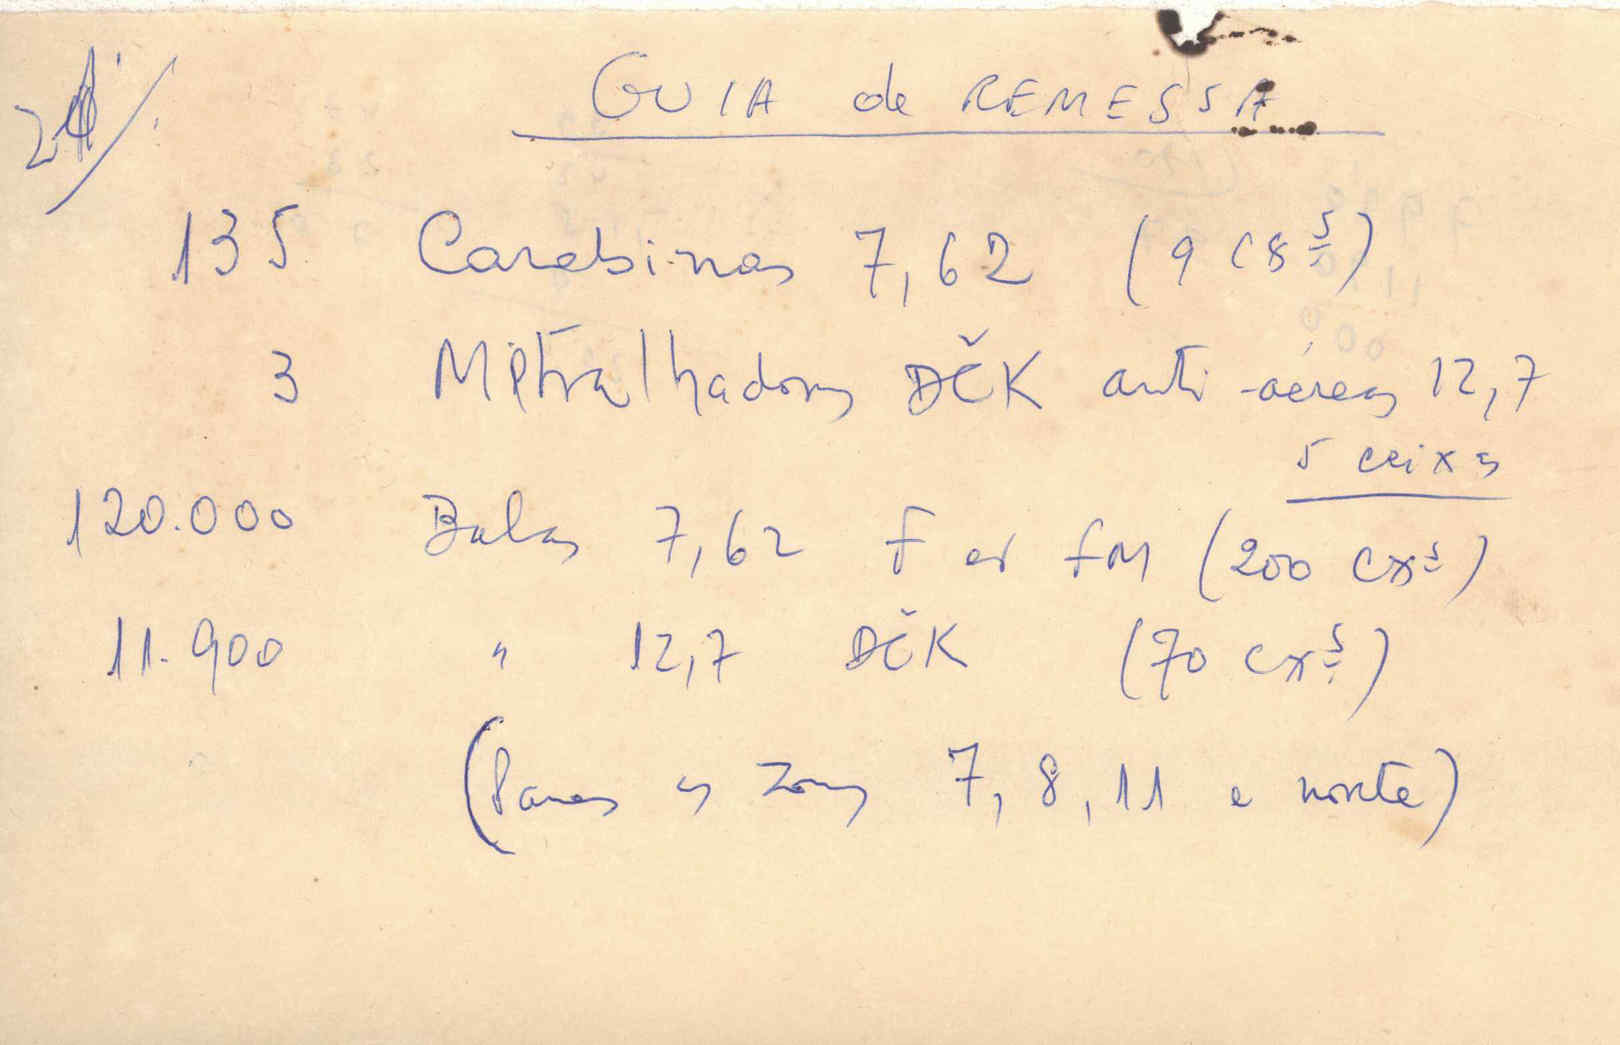 GUIA de REMESSA
135 Carabinas 7,62 (9 cxs)
3 Mitralhadoras DČK anti-aéreas 12,7
5 caixas
120.000 Balas 7,62 F et FM (200 cxs)
11.900 " 12,7 DČK (70 cxs)
(Para as zonas 7, 8, 11 e norte)